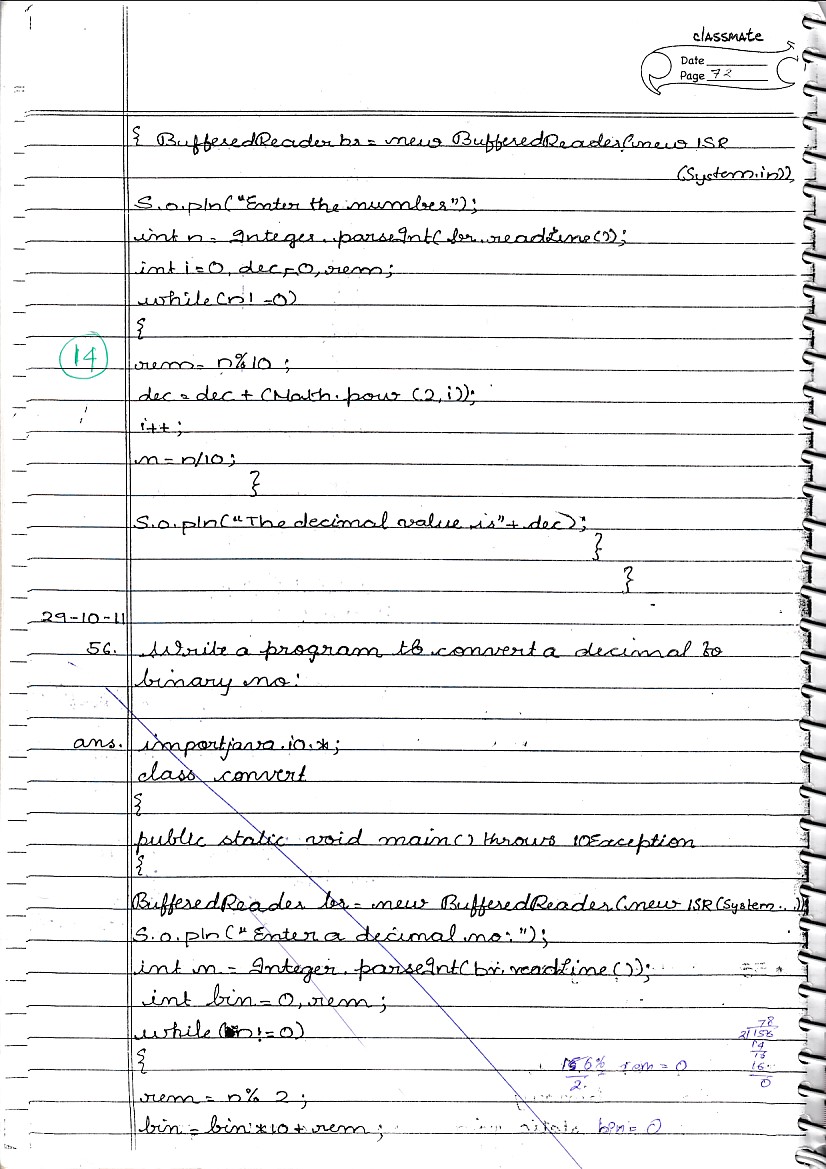 classmate
Date
Page 72
{ BufferedReader br = new BufferedReader(new ISR
(System.in));
S.o.pln("Enter the number");
int n = Integer.parseInt(br.readLine());
int i=0, dec=0, rem;
while(n! =0)
{
14
rem = n%10 ;
dec = dec + (Math.pow (2,i));
i++ ;
n = n/10 ;
}
S.o.pln("The decimal value is"+ dec);
}
}
29-10-11
56. Write a program to convert a decimal to
binary no:
ans. import java.io.*;
class convert
{
public static void main() throws IOException
{
BufferedReader br = new BufferedReader(new ISR(System...))
S.o.pln("Enter a decimal no:");
int n = Integer.parseInt(br.readLine());
int bin = 0, rem ;
while(n!=0)
{
rem = n% 2 ;
bin = bin*10 + rem ;
78
2 156
14
16
0
156%
2
rem = 0
bin = 0